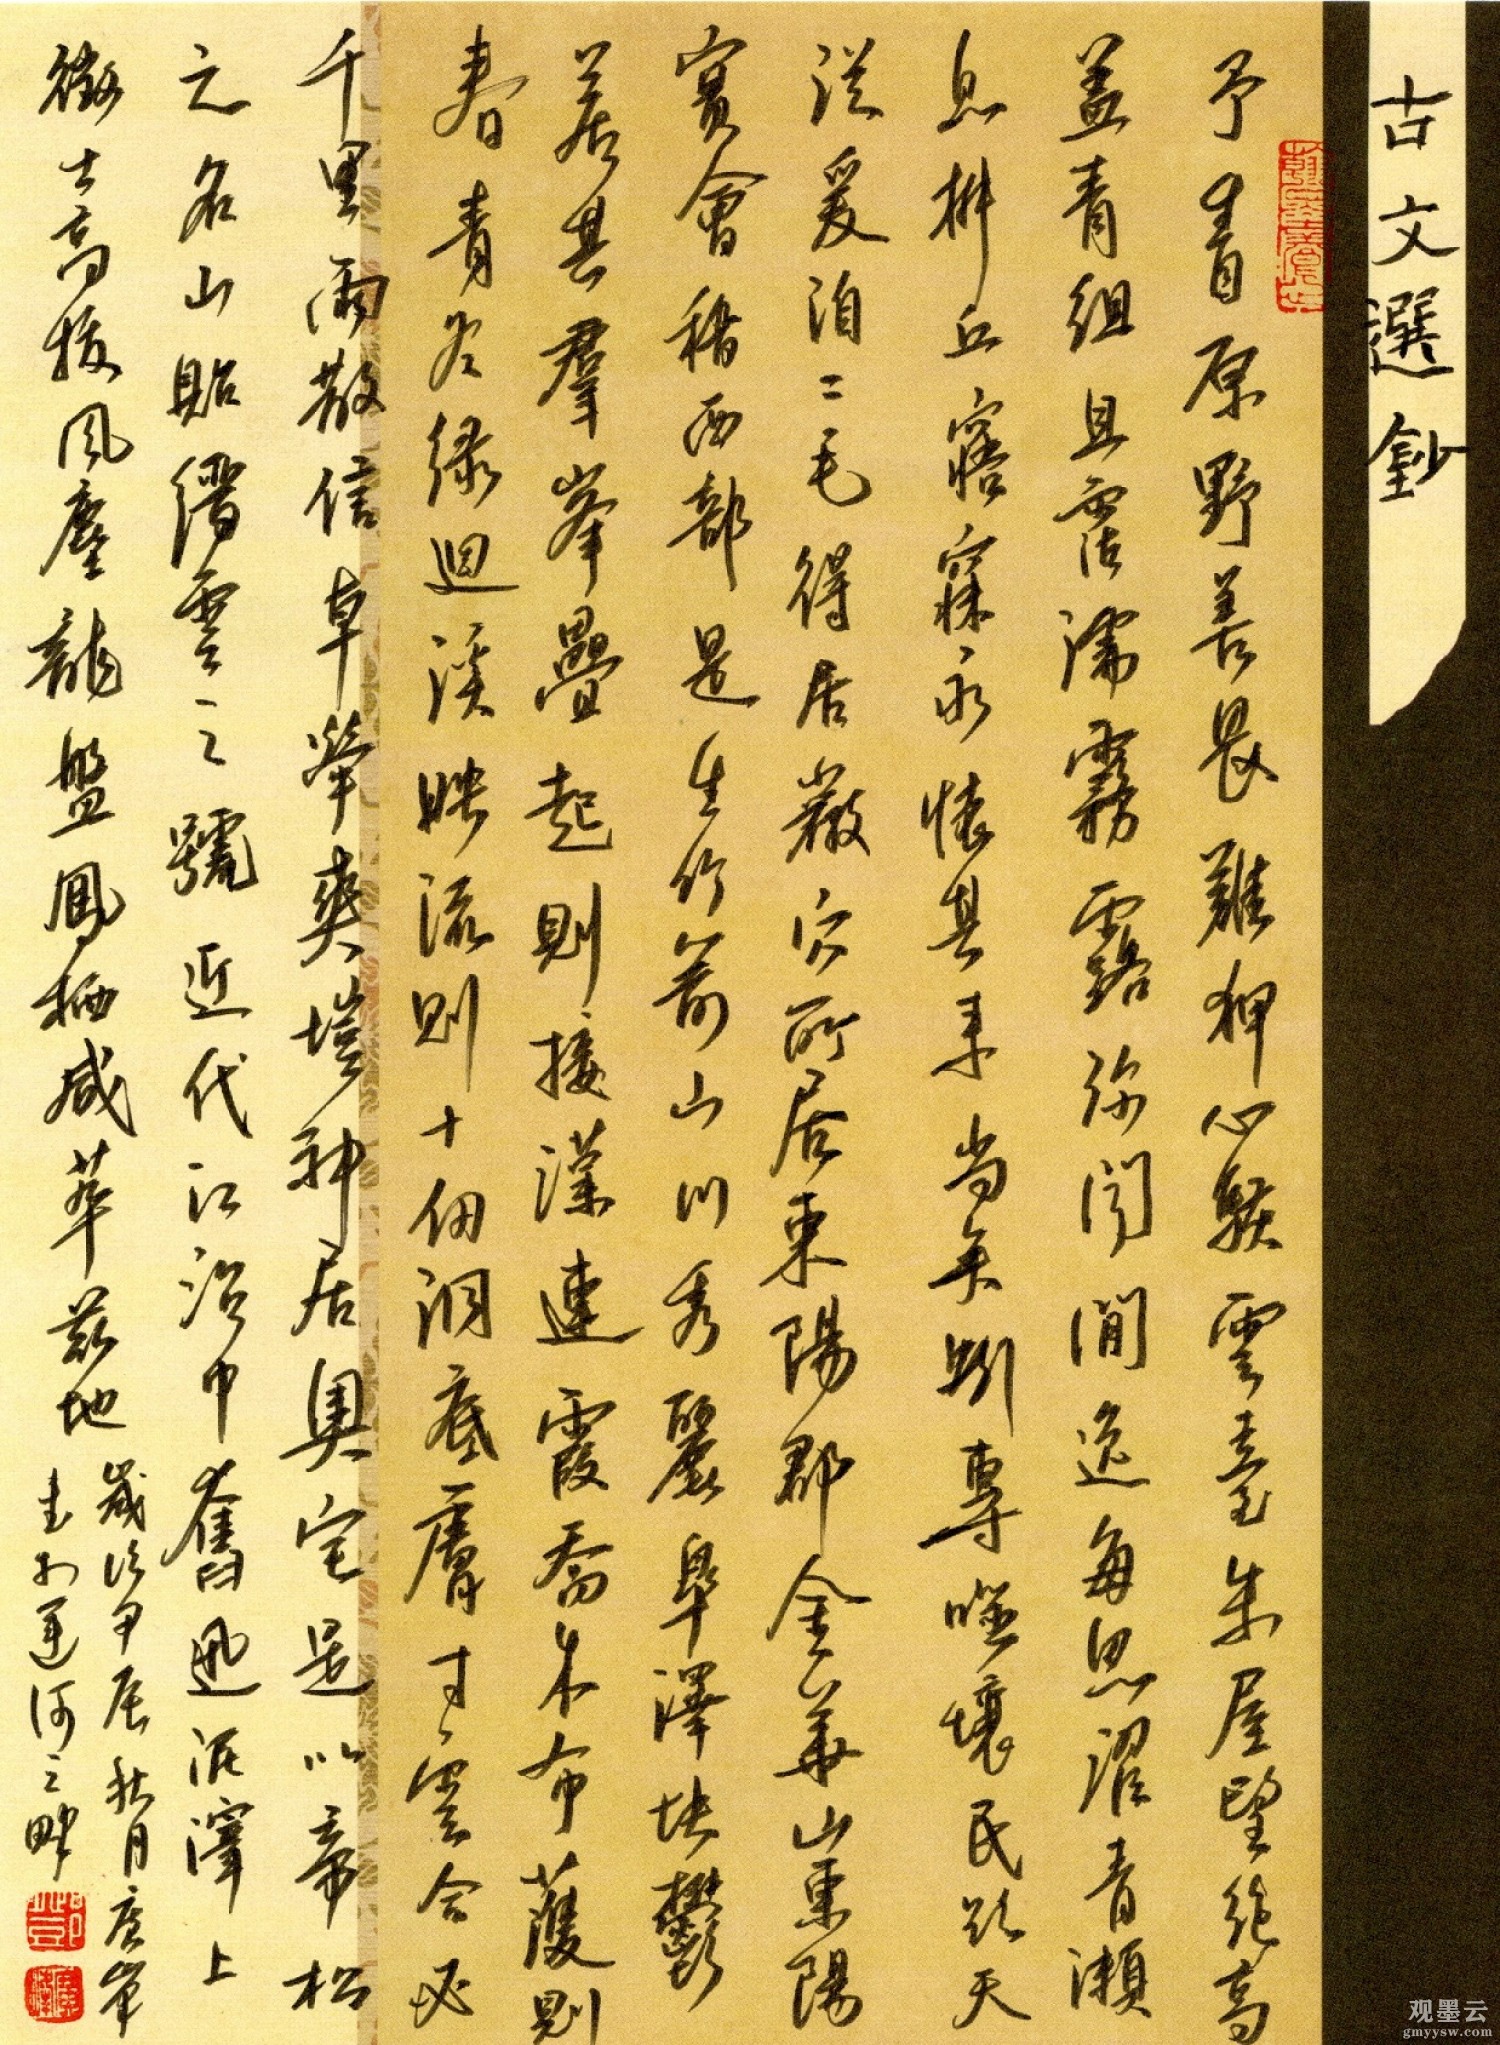 古文選鈔
予生自原野善畏難狎心駭雲臺朱屋望絕高
蓋青組且霑濡霧露弥閒逸每思濯青瀨
息椒丘寤寐永懷其来尚矣蚓專噬壤民欲天
從爰洎二毛得居巖穴所居東陽郡金華山東陽
實會稽西部是生竹箭山川秀麗皋澤坱鬱
若其羣峯疊起則接漢連霞喬木布護則
春青冬緑迴溪映流則十仞洞底膚寸雲合必
千里雨散信卓犖爽塏神居奥宅是以帝松
之名山貽縉雲之號近代江治中奮迅泥滓上
徵士高拔風塵龍盤鳳栖咸萃茲地
歲次甲辰秋月廣岸
書於運河之畔
观墨云
gmyysw.com